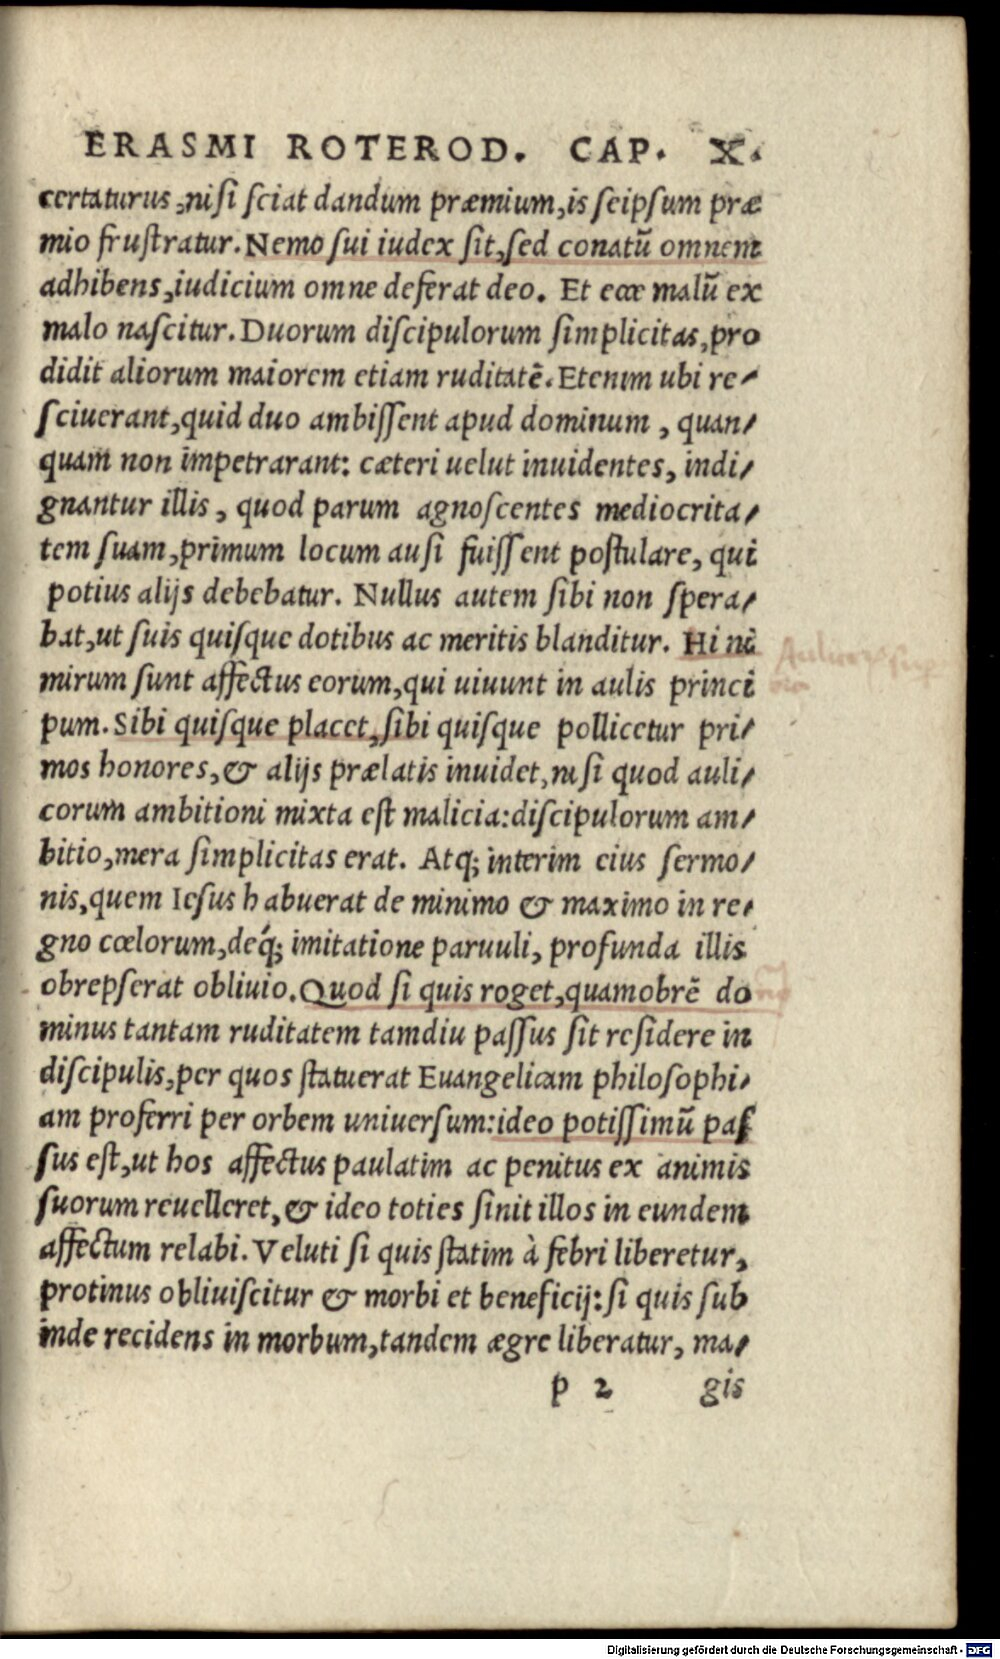 ERASMI ROTEROD. CAP. X.
certaturus, nisi sciat dandum præmium, is seipsum præ
mio frustratur. Nemo sui iudex sit, sed conatũ omnem
adhibens, iudicium omne deferat deo. Et ecce malũ ex
malo nascitur. Duorum discipulorum simplicitas, pro
didit aliorum maiorem etiam ruditatẽ. Etenim ubi re-
sciuerant, quid duo ambissent apud dominum, quan-
quam non impetrarant: cæteri uelut inuidentes, indi-
gnantur illis, quod parum agnoscentes mediocrita-
tem suam, primum locum ausi fuissent postulare, qui
potius alijs debebatur. Nullus autem sibi non spera-
bat, ut suis quisque dotibus ac meritis blanditur. Hi nẽ
mirum sunt affectus eorum, qui uiuunt in aulis princi
pum. Sibi quisque placet, sibi quisque pollicetur pri-
mos honores, & alijs prælatis inuidet, nisi quod auli-
corum ambitioni mixta est malicia: discipulorum am-
bitio, mera simplicitas erat. Atq; interim eius sermo-
nis, quem Iesus habuerat de minimo & maximo in re-
gno cœlorum, deq́; imitatione paruuli, profunda illis
obrepserat obliuio. Quod si quis roget, quamobrẽ do
minus tantam ruditatem tamdiu passus sit residere in
discipulis, per quos statuerat Euangelicam philosophi-
am proferri per orbem uniuersum: ideo potissimũ pas
sus est, ut hos affectus paulatim ac penitus ex animis
suorum reuelleret, & ideo toties sinit illos in eundem
affectum relabi. Veluti si quis statim à febri liberetur,
protinus obliuiscitur & morbi et beneficij: si quis sub
inde recidens in morbum, tandem ægre liberatur, ma-
p 2 gis
Digitalisierung gefördert durch die Deutsche Forschungsgemeinschaft - DFG